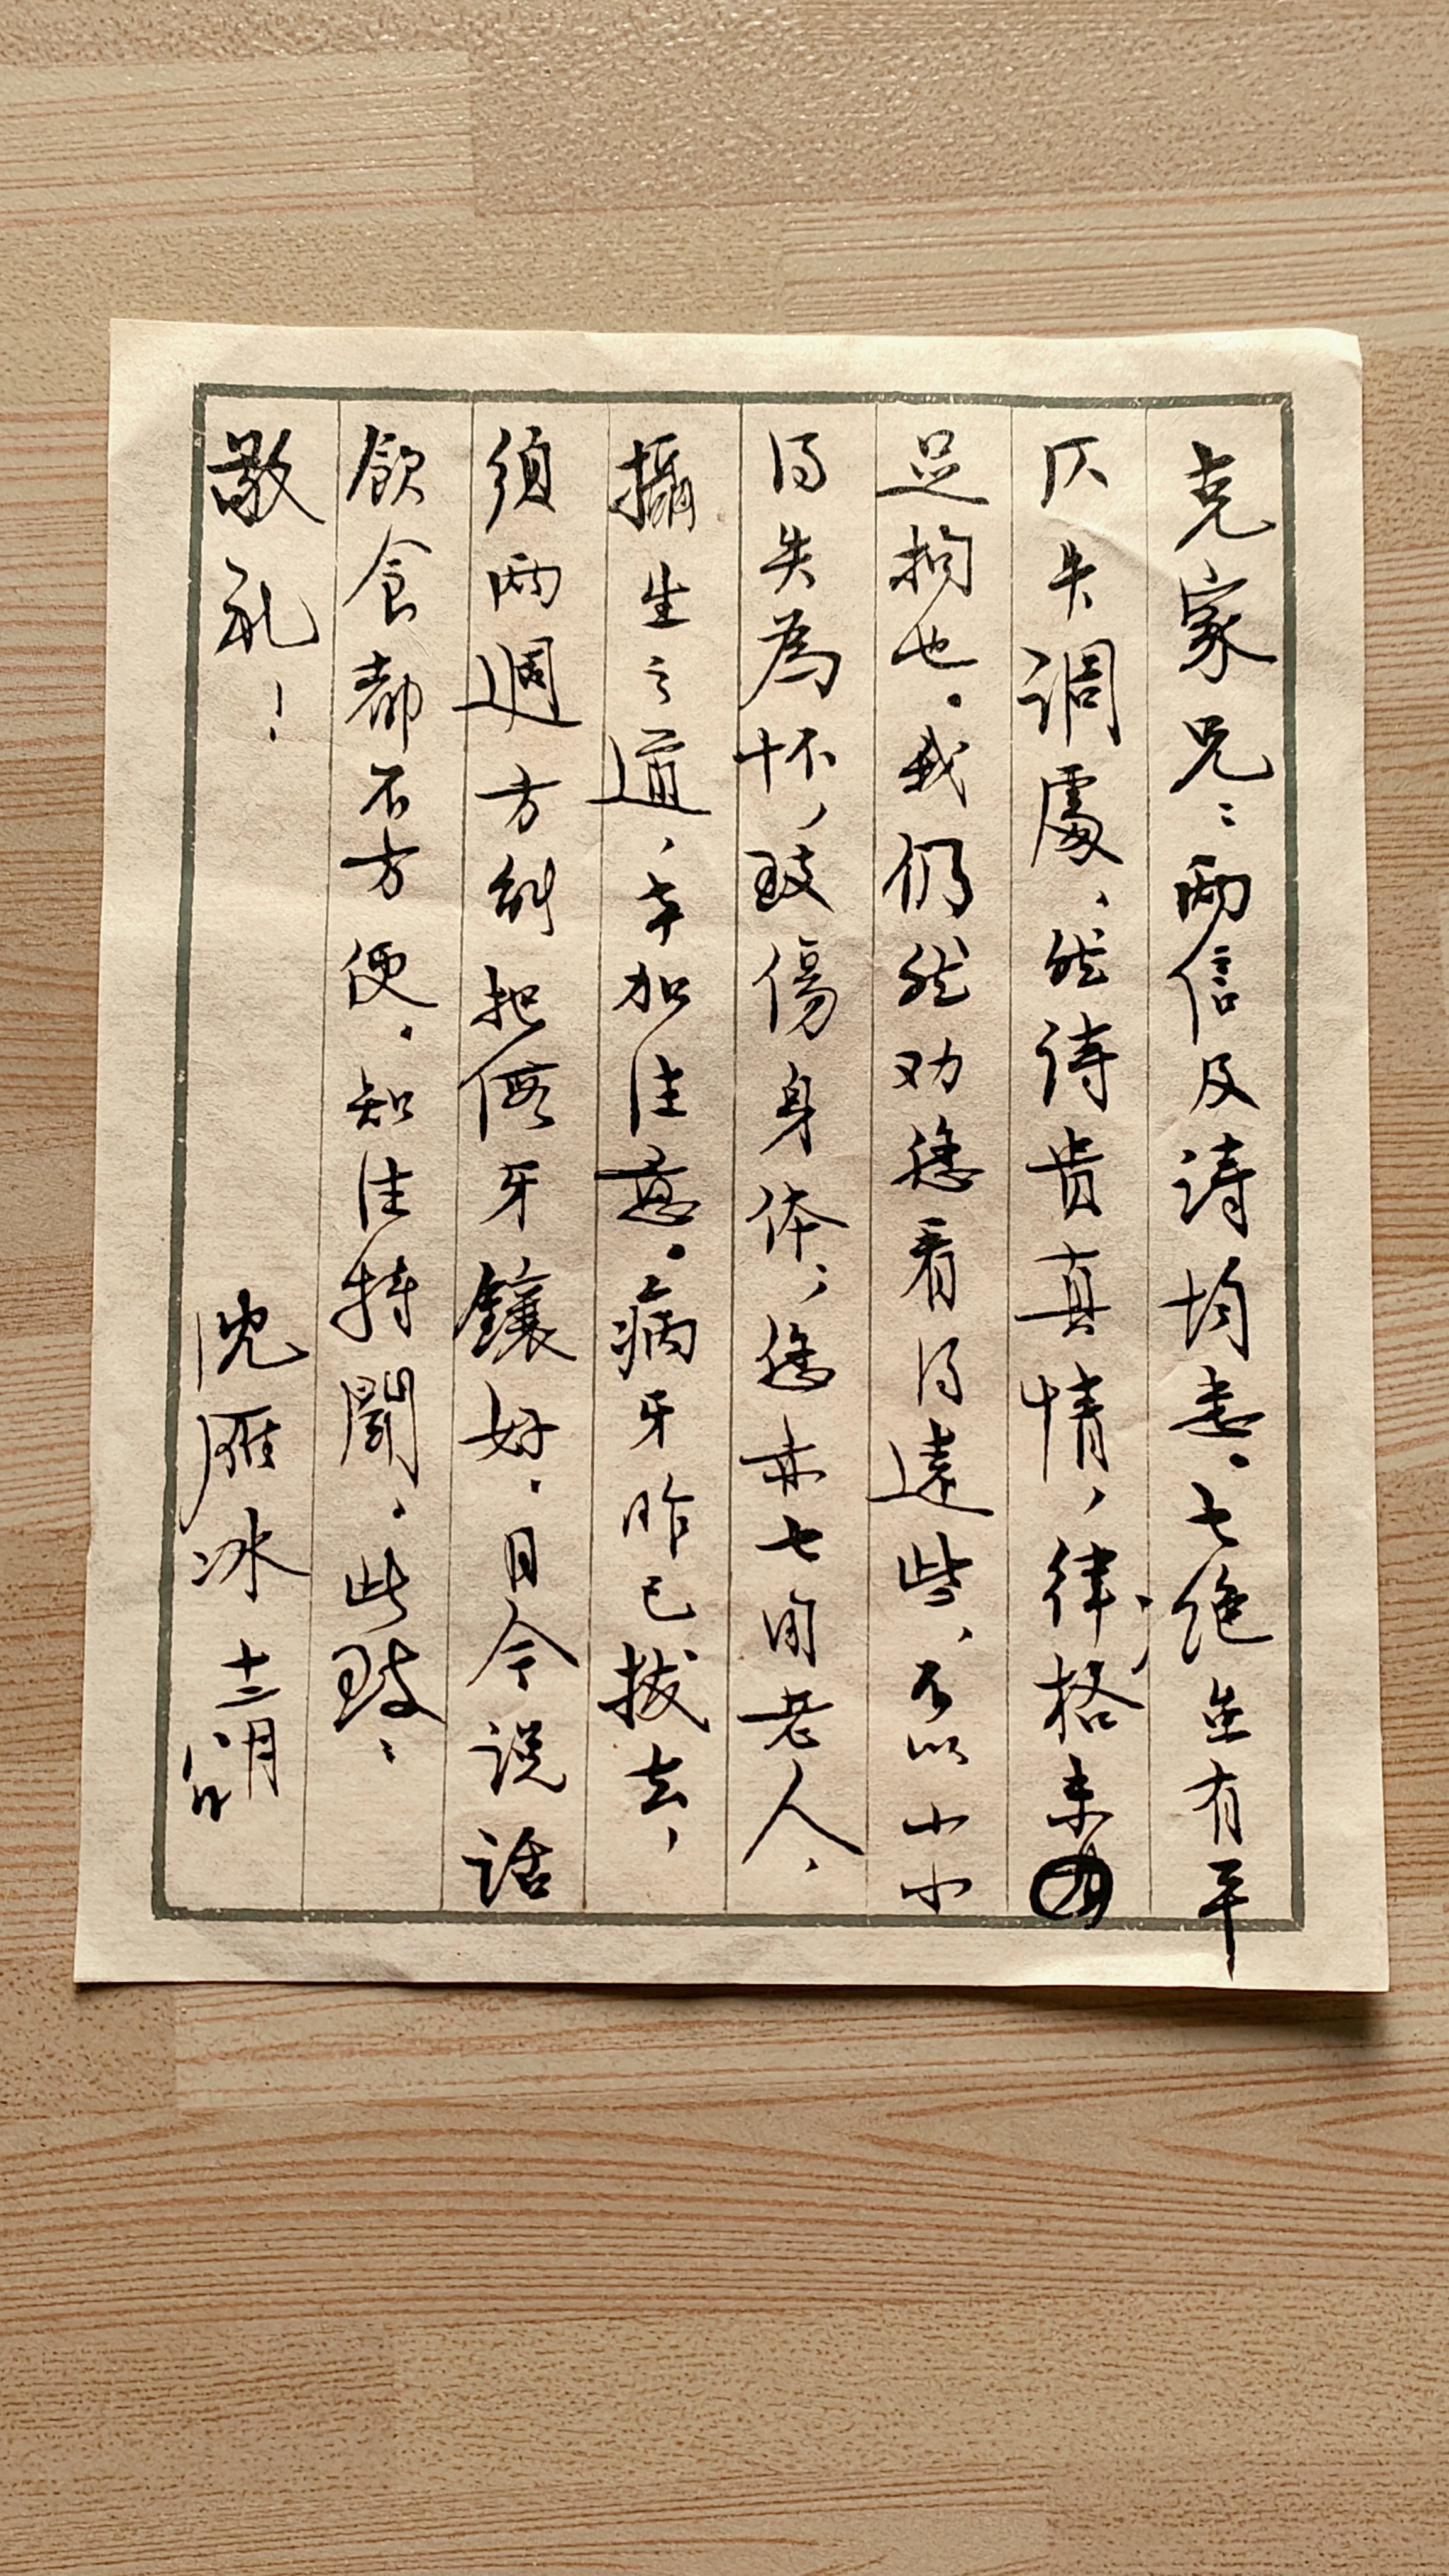 克家兄：兩信及诗均悉。七绝虽有平
仄失调處，然诗贵真情，律格未
足拘也。我仍然劝您看得遠些，不以小小
得失為怀，致傷身体；您亦七旬老人，
攝生之道，幸加注意。病牙昨已拔去，
须两週方能把假牙鑲好。目今说话
飲食都不方便。知注特聞。此致：
敬礼！
沈雁冰 十二月